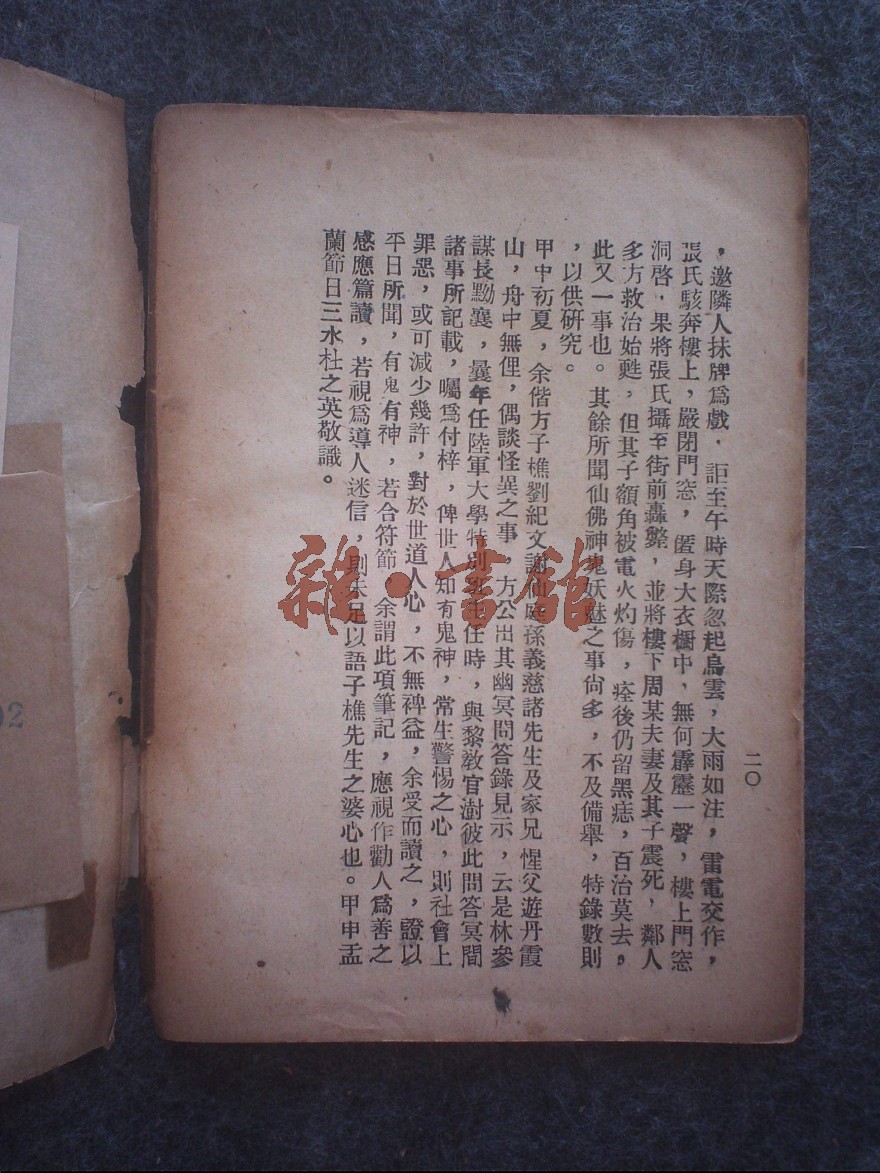 二〇
，邀隣人抹牌爲戲．詎至午時天際忽起烏雲，大雨如注，雷電交作，
張氏駭奔樓上，嚴閉門窓，匿身大衣櫥中．無何霹靂一聲，樓上門窓
洞啓，果將張氏攝至街前轟斃，並將樓下周某夫妻及其子震死，鄰人
多方救治始甦，但其子額角被電火灼傷，痊後仍留黑痣，百治莫去，
此又一事也。其餘所聞仙佛神鬼妖魅之事尙多，不及備舉，特錄數則
，以供硏究。
甲申初夏，余偕方子樵劉紀文謝仙庭孫義慈諸先生及家兄惺父遊丹霞
山，舟中無俚，偶談怪異之事，方公出其幽冥問答錄見示，云是林參
謀長黝襄，曩年任陸軍大學特別班主任時，與黎敎官澍彼此問答冥間
諸事所記載，囑爲付梓，俾世人知有鬼神，常生警惕之心，則社會上
罪惡，或可減少幾許，對於世道人心，不無裨益，余受而讀之，證以
平日所聞，有鬼有神，若合符節，余謂此項筆記，應視作勸人爲善之
感應篇讀，若視爲導人迷信，則未足以語子樵先生之婆心也。甲申盂
蘭節日三水杜之英敬識。
雜·書館
02